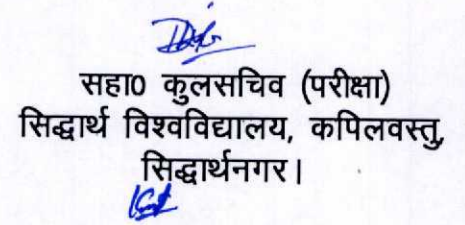 सहा0 कुलसचिव (परीक्षा)
सिद्धार्थ विश्वविद्यालय, कपिलवस्तु,
सिद्धार्थनगर।